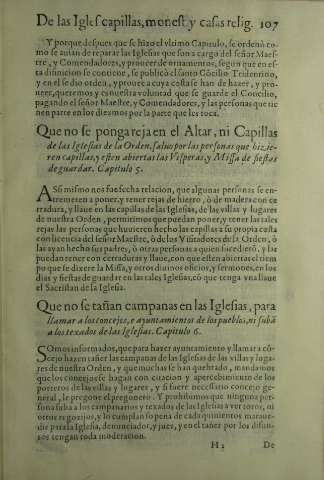 De las Igles. capillas, monest. y casas relig. 107
Y porque despues que se hizo el vltimo Capitulo, se ordenó co-
mo se auian de reparar las Iglesias que son a cargo del señor Maes-
tre, y Comendadores, y proueer de ornamentos, segun que en es-
ta difinicion se contiene, se publicò el santo Cõcilio Tridentino,
y en el se dio orden, y prouee a cuya costa se han de hazer, y pro-
ueer, queremos y es nuestra voluntad que se guarde el Concilio,
pagando el señor Maestre, y Comendadores, y las personas que tie
nen parte en los diezmos por la parte que les toca.
Que no se ponga reja en el Altar, ni Capillas
de las Iglesias de la Orden, saluo por las personas que hizie-
ren capillas, y esten abiertas las Visperas, y Missa de fiestas
de guardar. Capitulo 5.
ASsi mismo nos fue fecha relacion, que algunas personas se en-
tremeten a poner, y tener rejas de hierro, ò de madera con ce
rradura, y llaue en las capillas de las Iglesias, de las villas y lugares
de nuestra Orden, permitimos que puedan poner, y tener las tales
rejas las personas que huuieren hecho las capillas a su propia costa
con licencia del señor Maestre, ò de las Visitadores de la Orden, ò
las ayan hecho sus padres, ò otras personas a quien sucedierõ, y las
puedan tener con cerraduras y llaue, con que esten abiertas el tiem
po que se dixere la Missa, y otros diuinos oficios, y sermones, en los
dias y fiestas de guardar en las tales Iglesias, cõ que tenga vna llaue
el Sacristan de la Iglesia.
Que no se tañan campanas en las Iglesias, para
llamar a los concejos, o ayuntamientos de los pueblos, ni subã
a los texados de las Iglesias. Capitulo 6.
SOmos informados, que para hazer ayuntamiento y llamar a cõ-
cejo hazen tañer las campanas de las Iglesias de las villas y luga-
res de nuestra Orden, y que muchas se han quebrado, mandamos
que los concejos se hagan con citacion y apercebimiento de los
porteros de las villas y lugares, y si fuere necessario concejo ge-
neral, le pregone el pregonero. Y prohibimos que ninguna per-
sona suba a los campanarios y texados de las Iglesias a ver toros, ni
otros regozijos, y lo cumplan so pena de cada quinientos maraue-
dis para la Iglesia, denunciador, y juez, y en el tañer por los difun-
tos tengan toda moderacion.
H 2 De